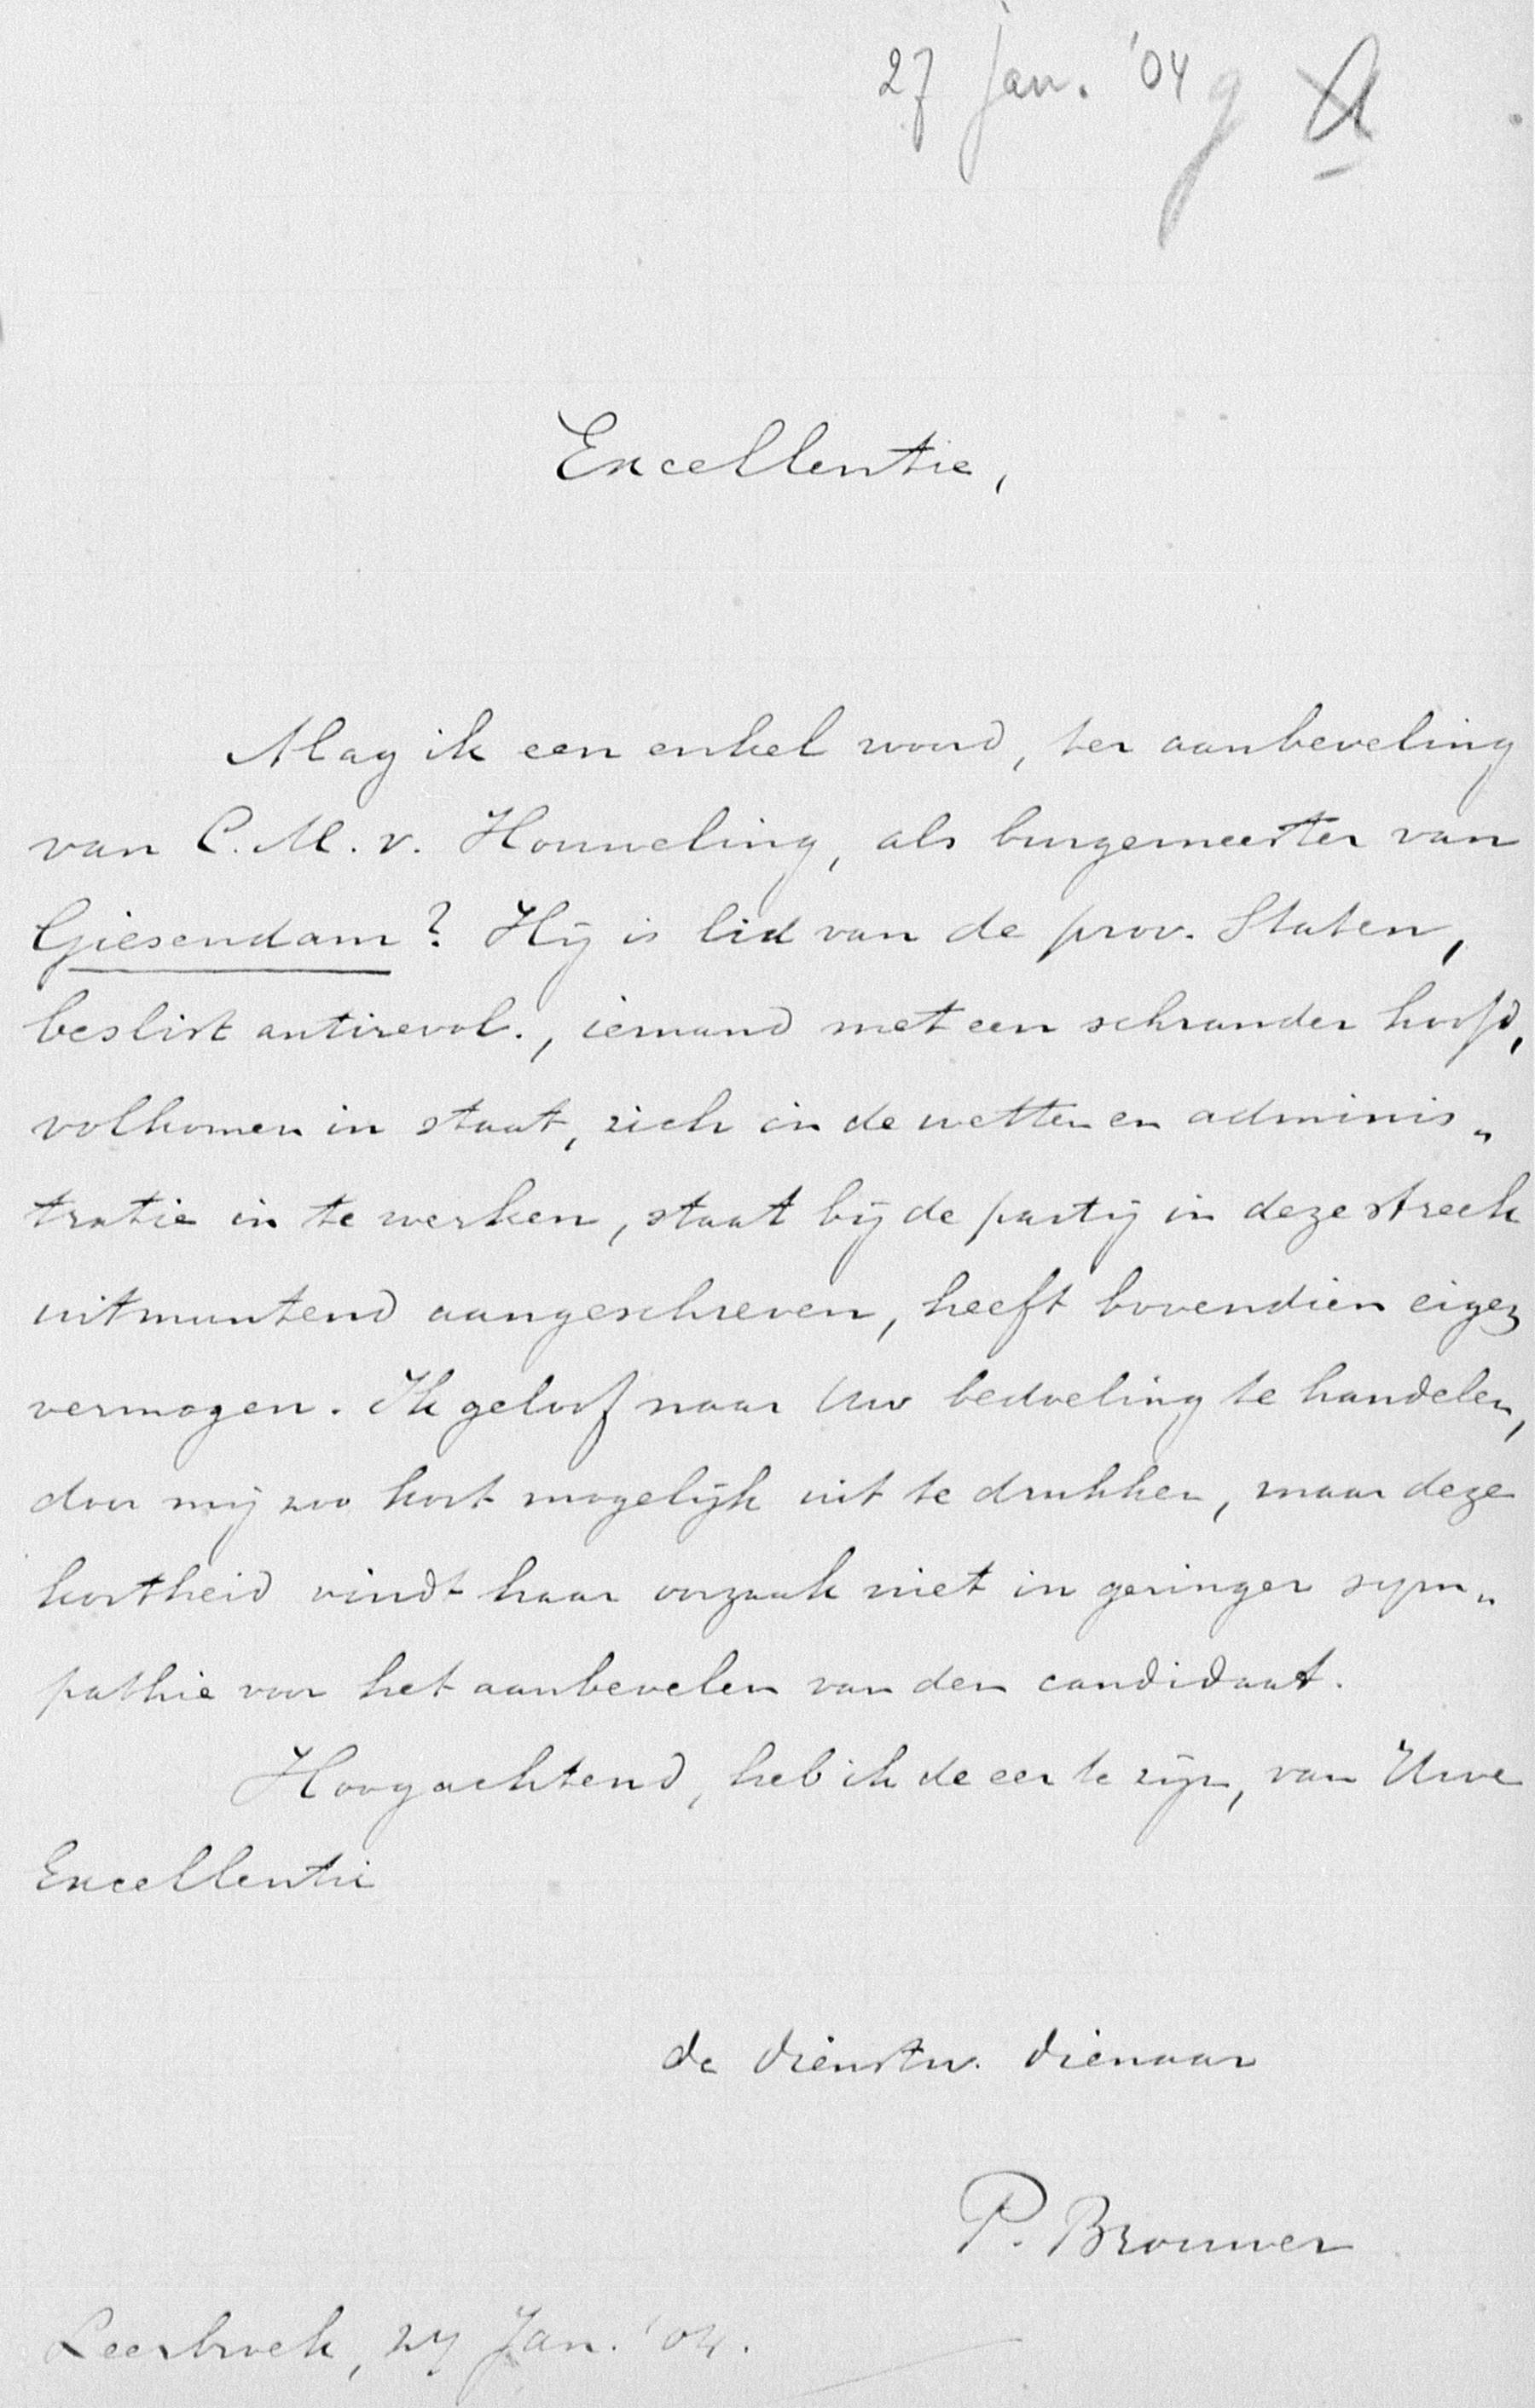 27 Jan. '04
Excellentie,
Mag ik een enkel woord, ter aanbeveling
van C. M. v. Houweling, als burgemeester van
Giesendam? Hij is lid van de prov. Staten,
beslist antirevol., iemand met een schrander hoofd,
volkomen in staat, zich in de wetten en adminis„
tratie in te werken, staat bij de partij in deze streek
uitmuntend aangeschreven, heeft bovendien eigen
vermogen. Ik geloof naar Uw bedoeling te handelen,
door mij zoo kort mogelijk uit te drukken, maar deze
kortheid vindt haar oorzaak niet in geringer sym„
pathie voor het aanbevelen van den candidaat.
Hoogachtend, heb ik de eer te zijn, van Uwe
Excellentie
de dienstw. dienaar
P. Brouwer
Leerbroek, 27 Jan. '04.